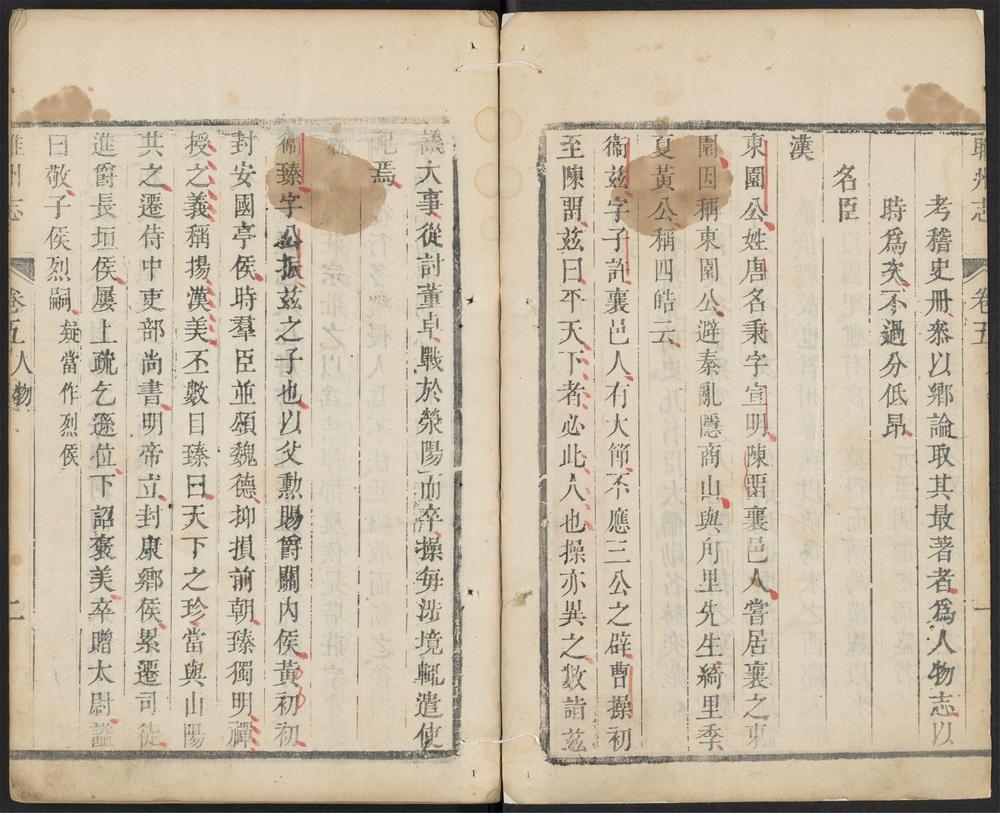 睢州志 卷五 一
考稽史冊叅以鄉論取其最著者爲人物志以
時爲次不過分低昂
名臣
漢
東園公姓唐名秉字宣明陳畱襄邑人嘗居襄之東
園因稱東園公避秦亂隱商山與甪里先生綺里季
夏黃公稱四皓云
衞兹字子許襄邑人有大節不應三公之辟曹操初
至陳畱兹曰平天下者必此人也操亦異之數詣兹
議大事從討董卓戰於滎陽而卒操每涉境輒遣使
祀焉
魏
衞臻字公振兹之子也以父勲賜爵關內侯黃初初
封安國亭侯時羣臣並頌魏德抑損前朝臻獨明禪
授之義稱揚漢美丕數目臻曰天下之珍當與山陽
共之遷侍中吏部尚書明帝立封康鄉侯累遷司徒
進爵長垣侯屢上疏乞遜位下詔褒美卒贈太尉謚
曰敬子侯烈嗣疑當作烈侯
睢州志 卷五人物 二